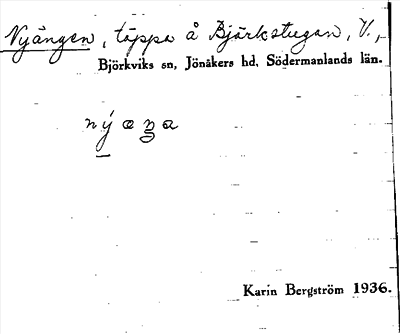 Nyängen, täppa å Björkstugan, V.,
Björkviks sn, Jönåkers hd, Södermanlands län.
Karin Bergström 1936.